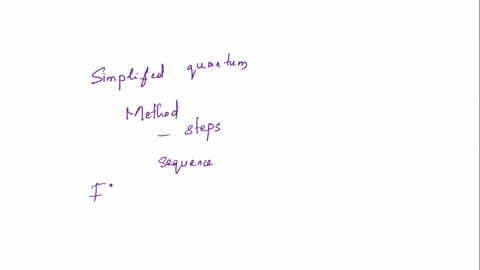 Simplifed quantum
Method
- steps
sequence
I